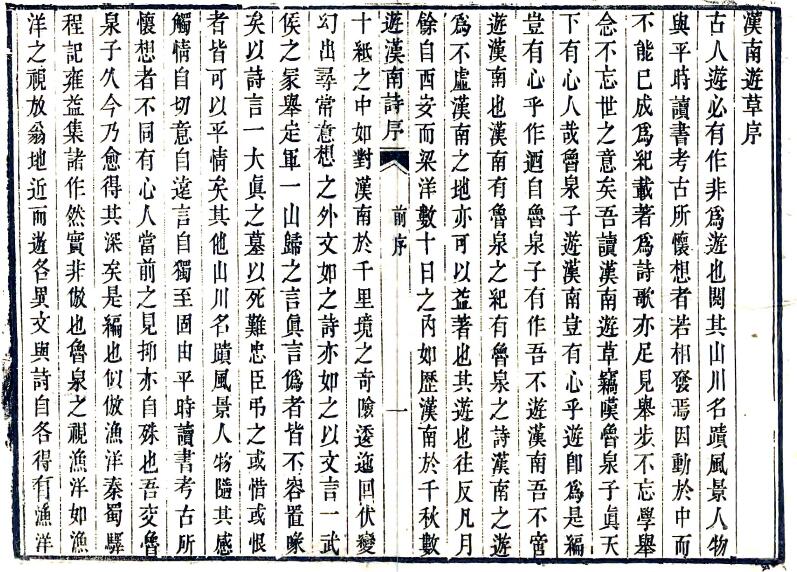 漢南遊草序
古人遊必有作非爲遊也閱其山川名蹟風景人物
與平時讀書考古所懷想者若相發焉因動於中而
不能已成爲紀載著爲詩歌亦足見舉步不忘學舉
念不忘世之意矣吾讀漢南遊草竊嘆魯泉子眞天
下有心人哉魯泉子遊漢南豈有心乎遊卽爲是編
豈有心乎作迺自魯泉子有作吾不遊漢南吾不啻
遊漢南也漢南有魯泉之紀有魯泉之詩漢南之遊
爲不虛漢南之地亦可以益著也其遊也往反凡月
餘自西安而梁洋數十日之內如歷漢南於千秋數
遊漢南詩序
前序
一
十紙之中如對漢南於千里境之奇險逶迤回伏變
幻出尋常意想之外文如之詩亦如之以文言一武
侯之冢舉定軍一山歸之言眞言僞者皆不容置喙
矣以詩言一大眞之墓以死難忠臣弔之或惜或恨
者皆可以平情矣其他山川名蹟風景人物隨其感
觸情自切意自遠言自獨至固由平時讀書考古所
懷想者不同有心人當前之見抑亦自殊也吾交魯
泉子久今乃愈得其深矣是編也似倣漁洋秦蜀驛
程記雍益集諸作然實非倣也魯泉之視漁洋如漁
洋之視放翁地近而遊各異文與詩自各得有漁洋